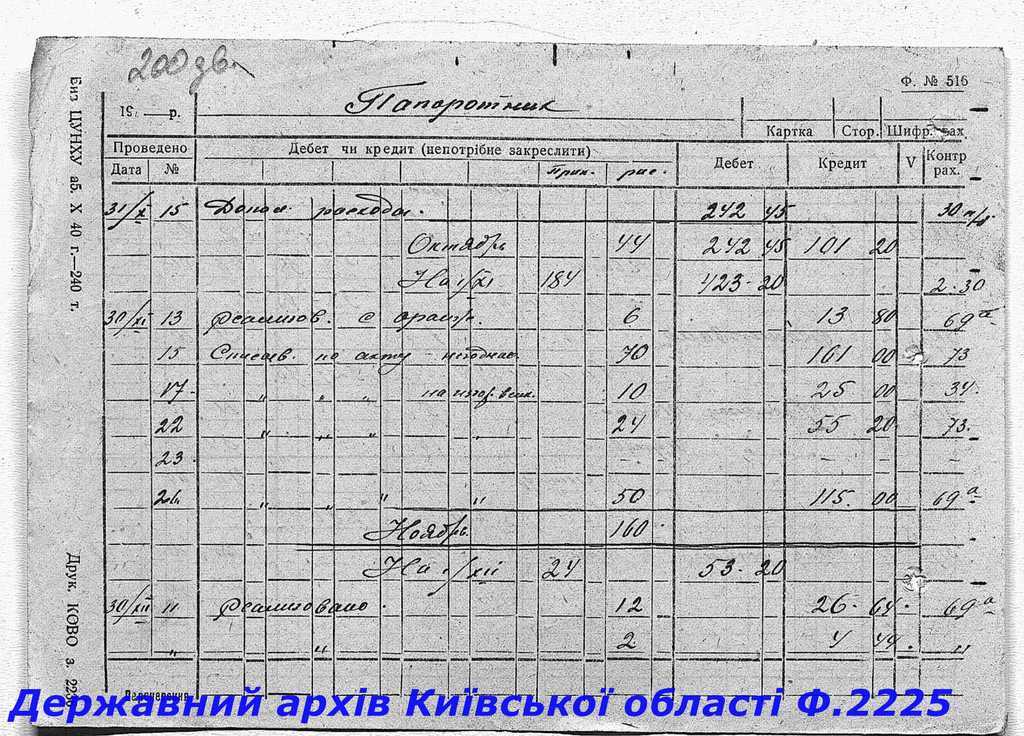 200 дв.
Ф. № 516
19 р. Папоротник
Картка Стор. Шифр. рах
Проведено Дебет чи кредит (непотрібне закреслити) Дебет Кредит V Контр рах.
Дата № прих. рас.
31/X 15 Допол. расходы. 242 45 30
Октябрь 44 242 45 101 20
На 1/XI 184 423 20 2.30
30/XI 13 реализов. с 6 13 80 69а
15 Списав. по акту 70 161 00 73
17 " " " 10 25 00 34.
22 " " " " 24 55 20 73.
23
26 " " " 50 115. 00 69а
Ноябрь 160
На 1/XII 24 53. 20
30/XII 11 реализовано. 12 26. 64. 69а
" " 2. 4 44. "
Биз ЦУНХУ аб. X 40 г.—240 т.
Друк. КОВО з.
Державний архів Київської області Ф.2225